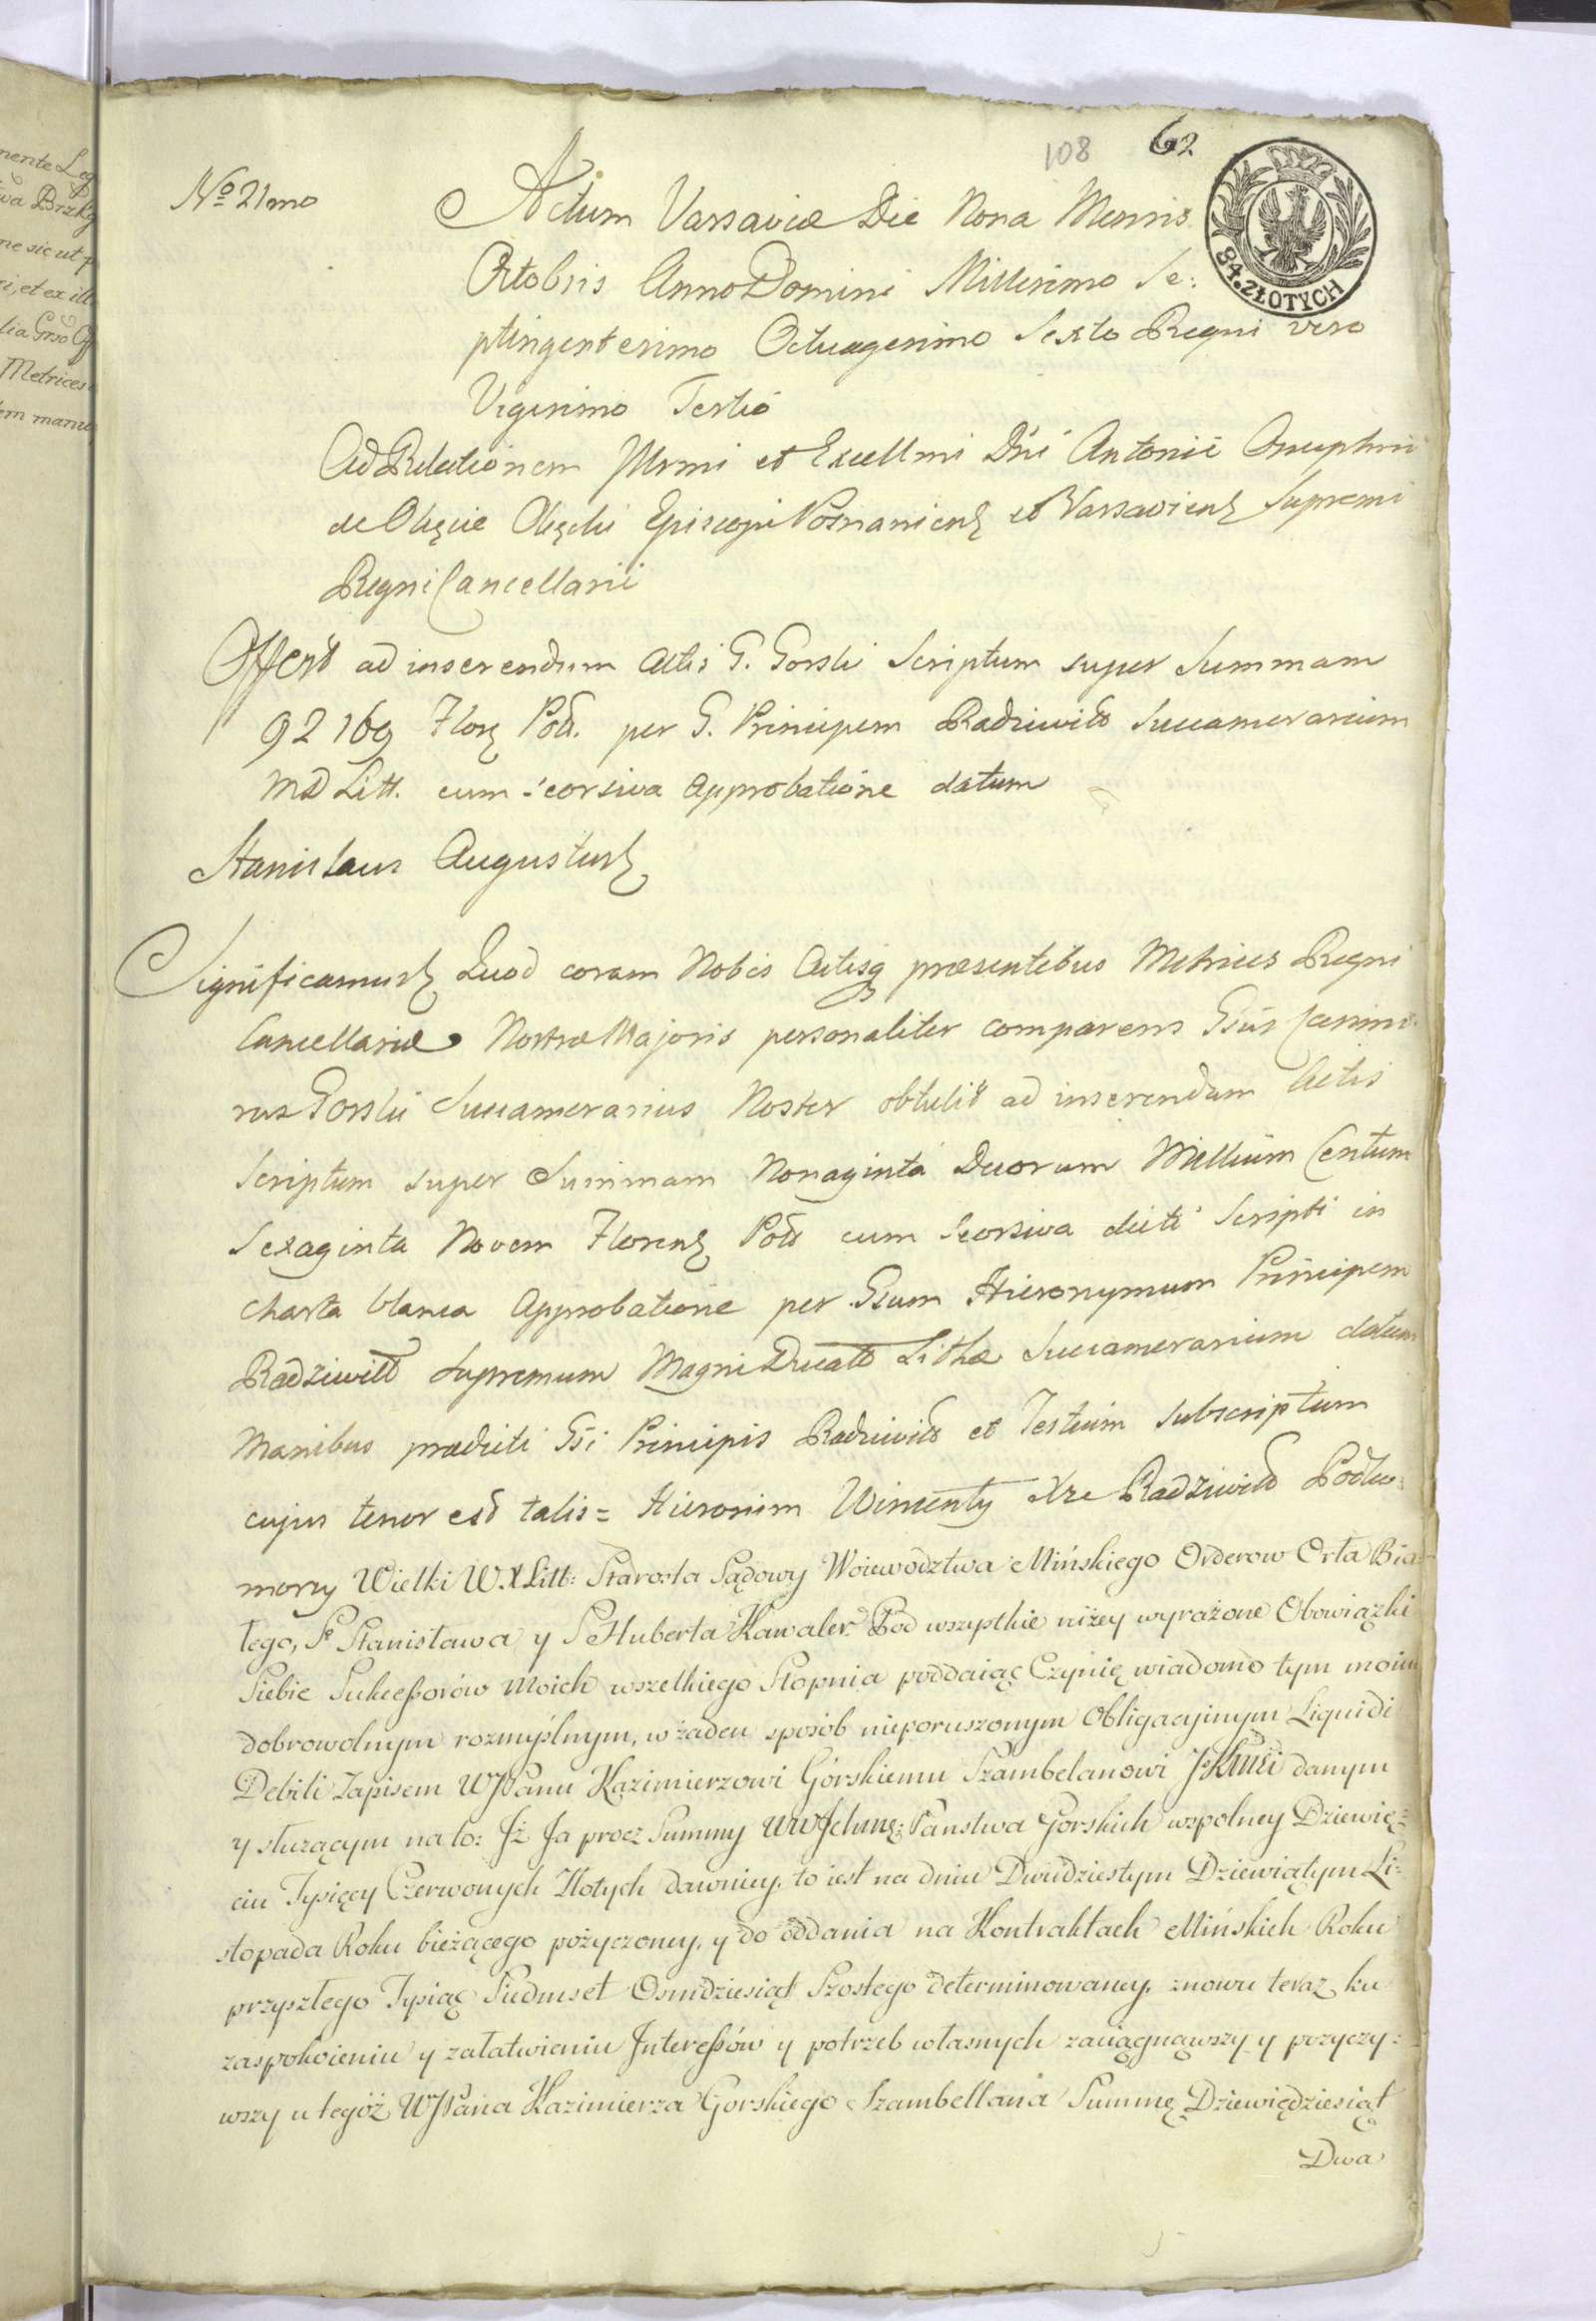 108 62
84. ZŁOTYCH
No 21mo
Actum Varsaviæ Die Nona Mensis
Octobris Anno Domini Millesimo Se:
ptingentesimo Octuagesimo Sexto Regni vero
Vigesimo Tertio
Ad Relationem Illrmi et Excellmi Dni Antonii Onuphrii
de Okęcie Okęcki Episcopi Posnanien et Varsavien Supremi
Regni Cancellarii
Offert ad inserendum Actis G. Gorski Scriptum super Summam
92169 Flor Poll. per G. Principem Radziwiłł Succamerarium
MD Litt. cum seorsiva Approbatione datum
Stanislaus Augustus
Significamus Quod coram Nobis Actisq præsentibus Metrices Regni
Cancellariæ Nostræ Majoris personaliter comparens Gsus Casimi:
rus Gorski Succamerarius Noster obtulit ad inserendum Actis
Scriptum super Summam Nonaginta Duorum Millium Centum
Sexaginta Novem Floren Poll cum Seorsiva dicti Scripti in
charta blanca Approbatione per Gsum Hieronymum Principem
Radziwiłł Supremum Magni Ducatt Lithæ Succamerarium datum
Manibus prædicti Gsi Principis Radziwiłł et Testium subscriptum
cujus tenor est talis = Hieronim Wincenty Xże Radziwiłł Podko:
morzy Wielki W.X Litt: Starosta Sądowy Woiewodztwa Mińskiego Orderow Orła Bia:
łego, S Stanisława y S Huberta Kawaler. Pod wszystkie niżey wyrażone Obowiązki
Siebie Sukceßorów Moich wszelkiego Stopnia poddaiąc Czynię wiadomo tym moim
dobrowolnym rozmyślnym, w żaden sposób nieporuszonym Obligacyjnym Liquidi
Debiti Zapisem WJPanu Kazimierzowi Górskiemu Szambelanowi JKMci danym
y służącym na to: Jż Ja procz Summy WWJchmę: Państwa Gorskich wspolney Dziewię:
ciu Tysięcy Czerwonych Złotych dawniey, to iest na dniu Dwudziestym Dziewiątym Li:
stopada Roku bieżącego pożyczoney, y do oddania na Kontraktach Mińskich Roku
przyszłego Tysiąc Siedmset Osmdziesiąt Szostego determinowaney, znowu teraz ku
zaspokoieniu y załatwieniu Intereßów y potrzeb własnych zaciągnąwszy y pozyczy:
wszy u tegóż WJPana Kazimierza Gorskiego Szambellana Summę Dziewiędziesiąt
Dwa